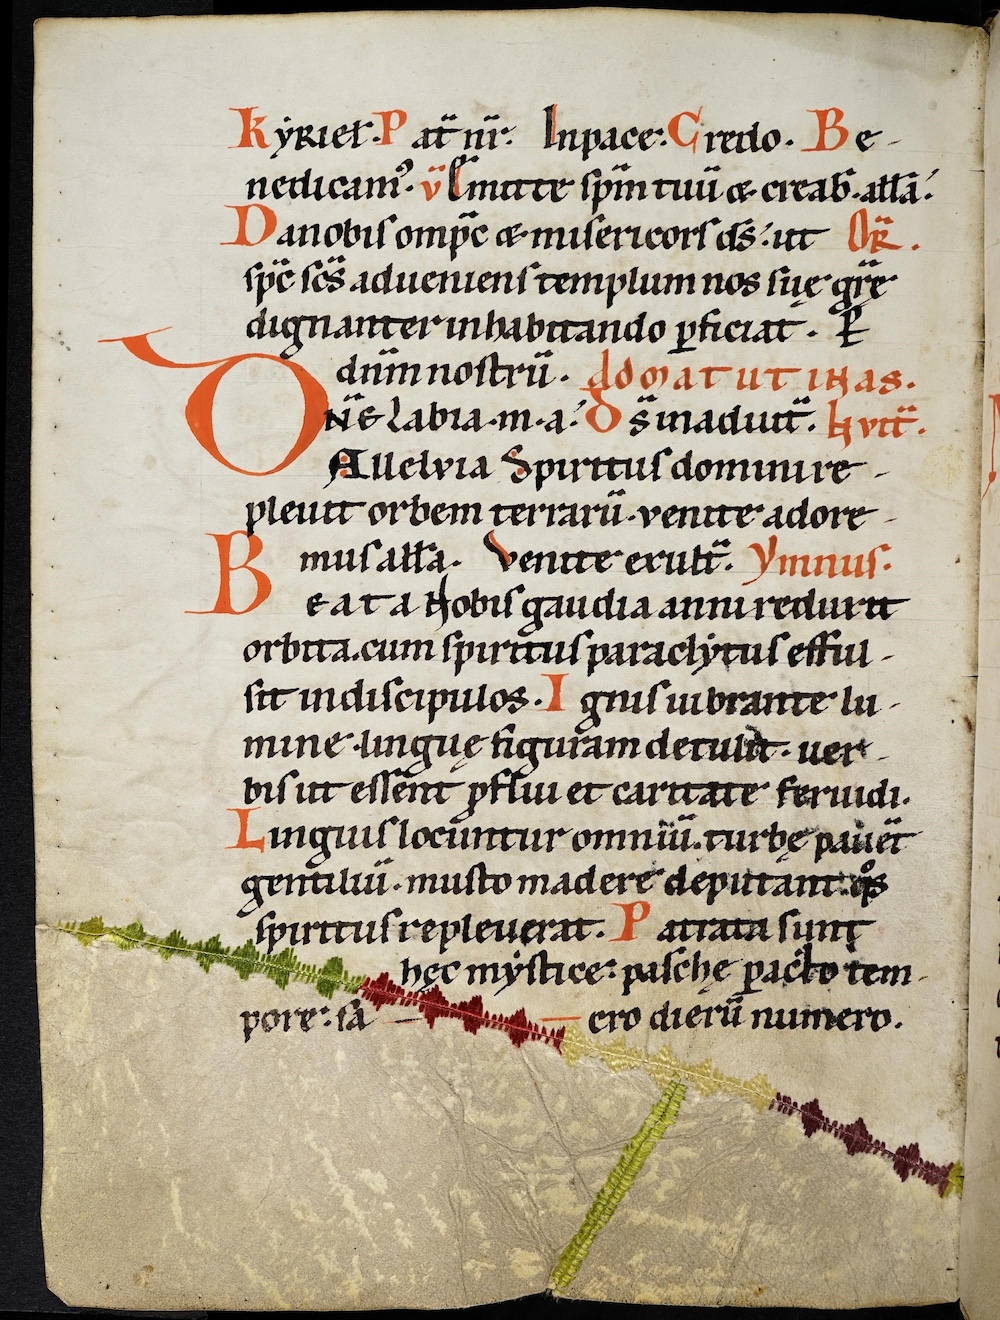 Kyriel̄. Pat̄ nr̄. Inpace. Credo. Be-
nedicam᷒. v̄ Emitte spm̄ tuū & creab̄. all̄a.
Da nobis omp̄c & misericors ds̄. ut OR̄.
sp̄c sc̄s adueniens templum nos suę gr̄e
dignanter inhabitando p̄ficiat. P
dn̄m nostrū. ad matutinas.
Dn̄e labia. m. a. Ds̄ in adiut̄. Invit̄.
Allelvia Spiritus domini re-
pleuit orbem terrarū. venite adore-
mus all̄a. Venite exult̄. Ymnus.
Beata Nobis gaudia anni reduxit
orbita. cum spiritus paraclytus efful-
sit in discipulos. Ignis uibrante lu-
mine. linguę figuram detulit. uer-
bis ut essent p̄flui et caritate feruidi.
Linguis locuntur omniū. turbę pauēt
gentiliū. musto madere deputant. q̊s
spiritus repleuerat. Patrata sunt
hęc mystice. paschę pacto tem-
pore. sa — cro dierū numero.